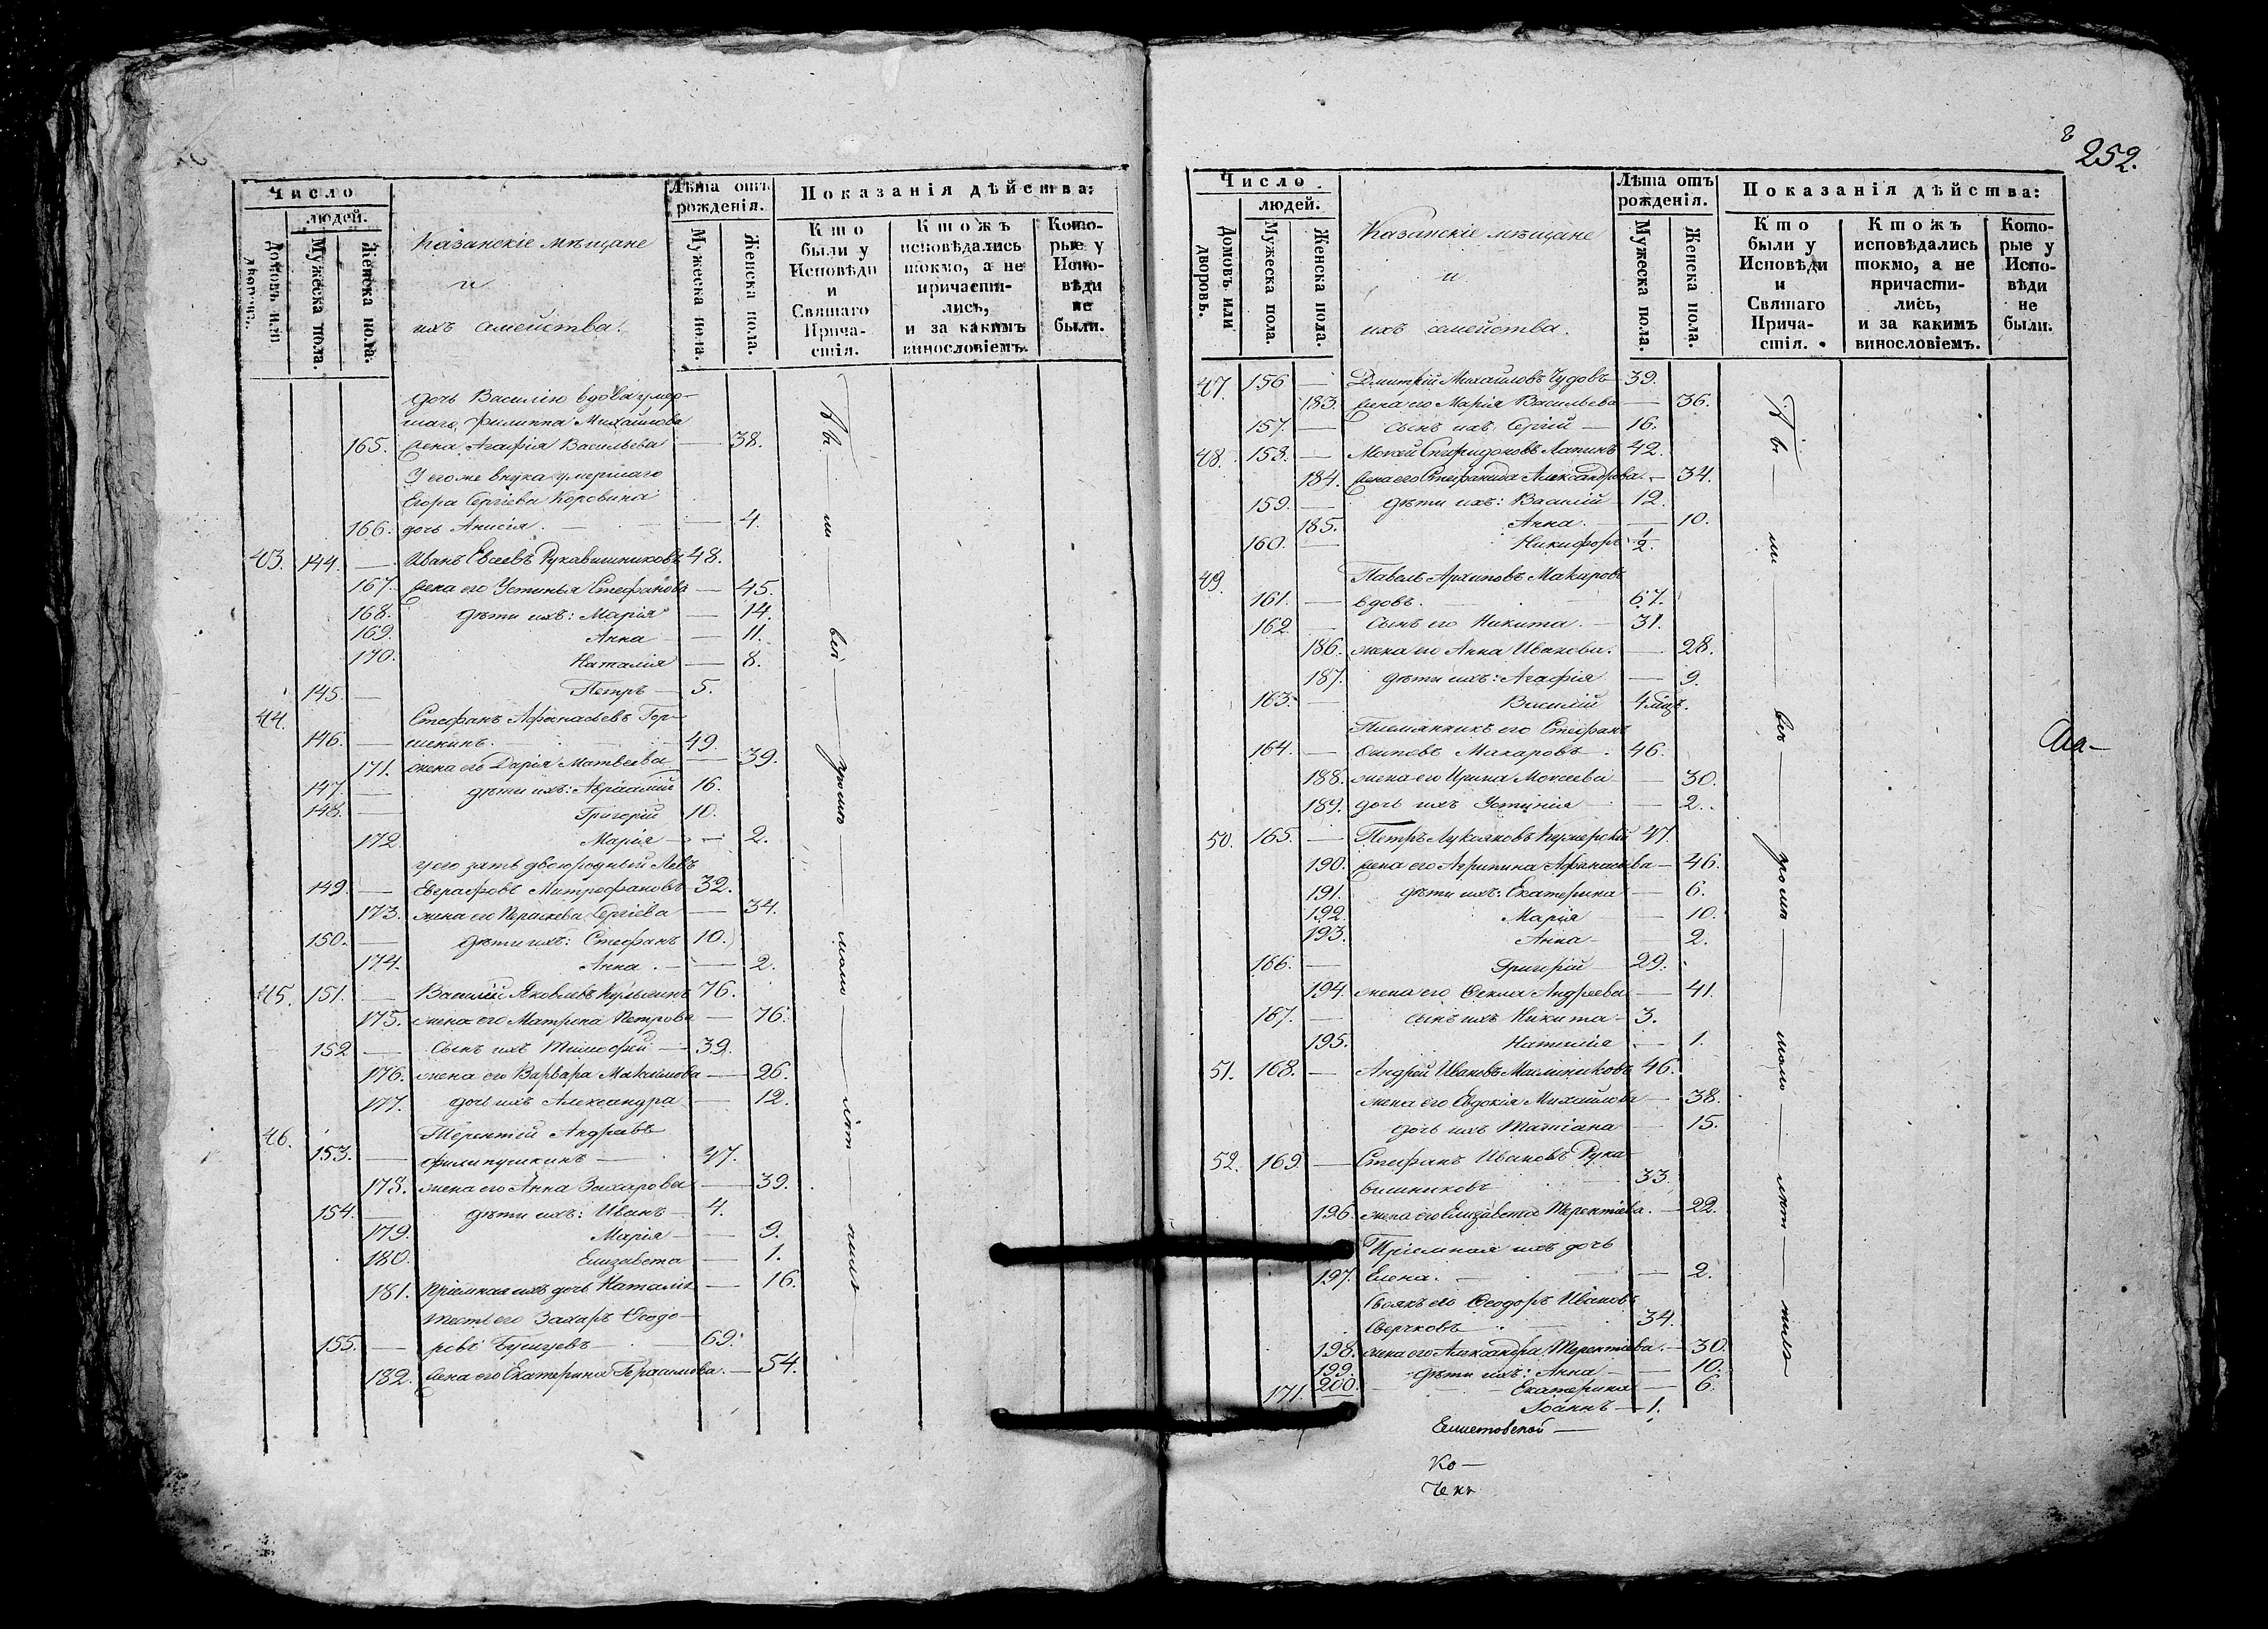 Число
людей.
Домовъ или дворовъ.
Мужеска пола.
Женска пола.
Казанскіе мѣщане
и
ихъ семейства.
Лѣта отъ рожденія.
Мужеска пола.
Женска пола.
Показанія дѣйства:
Кто были у Исповѣди и Святаго Причастія.
Ктожъ исповѣдались токмо, а не причастились, и за какимъ винословіемъ.
Которые у Исповѣди не были.
дочь Василію вдова умер-
шаго Филиппа Михайлова
165. жена Агафія Васильева — 38.
У егоже внука умершаго
Егора Сергіева Коровина
166. дочь Анисія. — 4.
43. 144. — Иванъ Евсеевъ Рукавишниковъ 48.
167. жена его Устинья Стефанова — 45.
168. дѣти ихъ: Марія — 14.
169. Анна — 11.
170. Наталія — 8.
145. — Петръ — 5.
44. Стефанъ Афанасьевъ Гор-
146. — шенинъ. 49.
171. жена его Дарія Матвеева — 39.
147. — дѣти ихъ: Авраамій 16.
148. — Григорій 10.
172 Марія — 2.
у его зять двоюродный Левъ
149. — Евграфовъ Митрофановъ 32.
173. жена его Параскева Сергіева — 34.
150. — дѣти ихъ: Стефанъ 10.
174. Анна. — 2.
45. 151. — Василій Яковлевъ 76.
175. жена его Матрена Петрова — 76.
152 — сынъ ихъ Тимофей — 39.
176. жена его Варвара Максимова — 26.
177. дочь ихъ Александра — 12.
46. Терентій Андреевъ
153. — Филипушкинъ — 47.
178. жена его Анна Захарова — 39.
154. — дѣти ихъ: Иванъ — 4.
179. Марія — 9.
180. Елизавета — 1.
181. Пріемная ихъ дочь Наталія — 16.
тесть его Захаръ Ѳеодо-
155. — ровъ 69.
182. жена его Екатерина Герасимова. — 54.
252.
Число
людей.
Домовъ или дворовъ.
Мужеска пола.
Женска пола.
Казанскіе мѣщане
и
ихъ семейства.
Лѣта отъ рожденія.
Мужеска пола.
Женска пола.
Показанія дѣйства:
Кто были у Исповѣди и Святаго Причастія.
Ктожъ исповѣдались токмо, а не причастились, и за какимъ винословіемъ.
Которые у Исповѣди не были.
47. 156 — Дмитрій Михайловъ Чудовъ — 39.
183. жена его Марія Васильева — 36.
157. — сынъ ихъ Сергій — 16.
48. 158. — Мокей Спиридоновъ Лапинъ 42.
184. жена его Стефанида Александрова — 34.
159. — дѣти ихъ: Василій — 12.
185. Анна. — 10.
160. — Никифоръ 1/2.
49. Павелъ Архиповъ Макаровъ
161. — вдовъ. — 67.
162. — Сынъ его Никита. — 31.
186. жена его Анна Иванова. — 28.
187. дѣти ихъ: Агафія — 9.
163. — Василій 4 мѣц.
Племянникъ его Стефанъ
164. — Осиповъ Макаровъ. 46.
188. жена его Ирина Мокеева — 30.
189. дочь ихъ Устинія — 2.
50. 165. — Петръ Лукояновъ 47.
190. жена его Агрипина Афанасьева — 46.
191. дѣти ихъ: Екатерина — 6.
192. Марія — 10.
193. Анна — 2.
166. — Григорій 29.
194. жена его Ѳекла Андреева — 41.
167. — сынъ ихъ Никита — 3.
195. Наталія — 1.
51. 168. — Андрей Ивановъ Масленниковъ 46.
жена его Евдокія Михайлова — 38.
дочь ихъ Татіана — 15.
52. 169. — Стефанъ Ивановъ Рука-
вишниковъ 33.
196. жена его Елизавета Терентіева. — 22.
Пріемная ихъ дочь
197. Елена. — 2.
Своякъ его Ѳеодоръ Ивановъ
Сверчковъ 34.
198. жена его Александра Терентіева. — 30.
199. дѣти ихъ: Анна — 10.
171. 200. Екатерина — 6.
Іоаннъ — 1.
Ко—